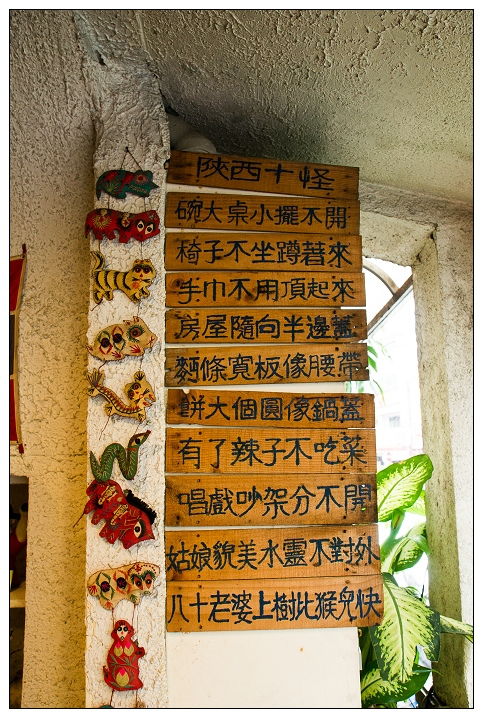 陝西十怪
碗大桌小擺不開
椅子不坐蹲著來
手巾不用頂起來
房屋隨向半邊蓋
麵條寬板像腰帶
餅大個圓像鍋蓋
有了辣子不吃菜
唱戲吵架分不開
姑娘貌美水靈不對外
八十老婆上樹比猴兒快